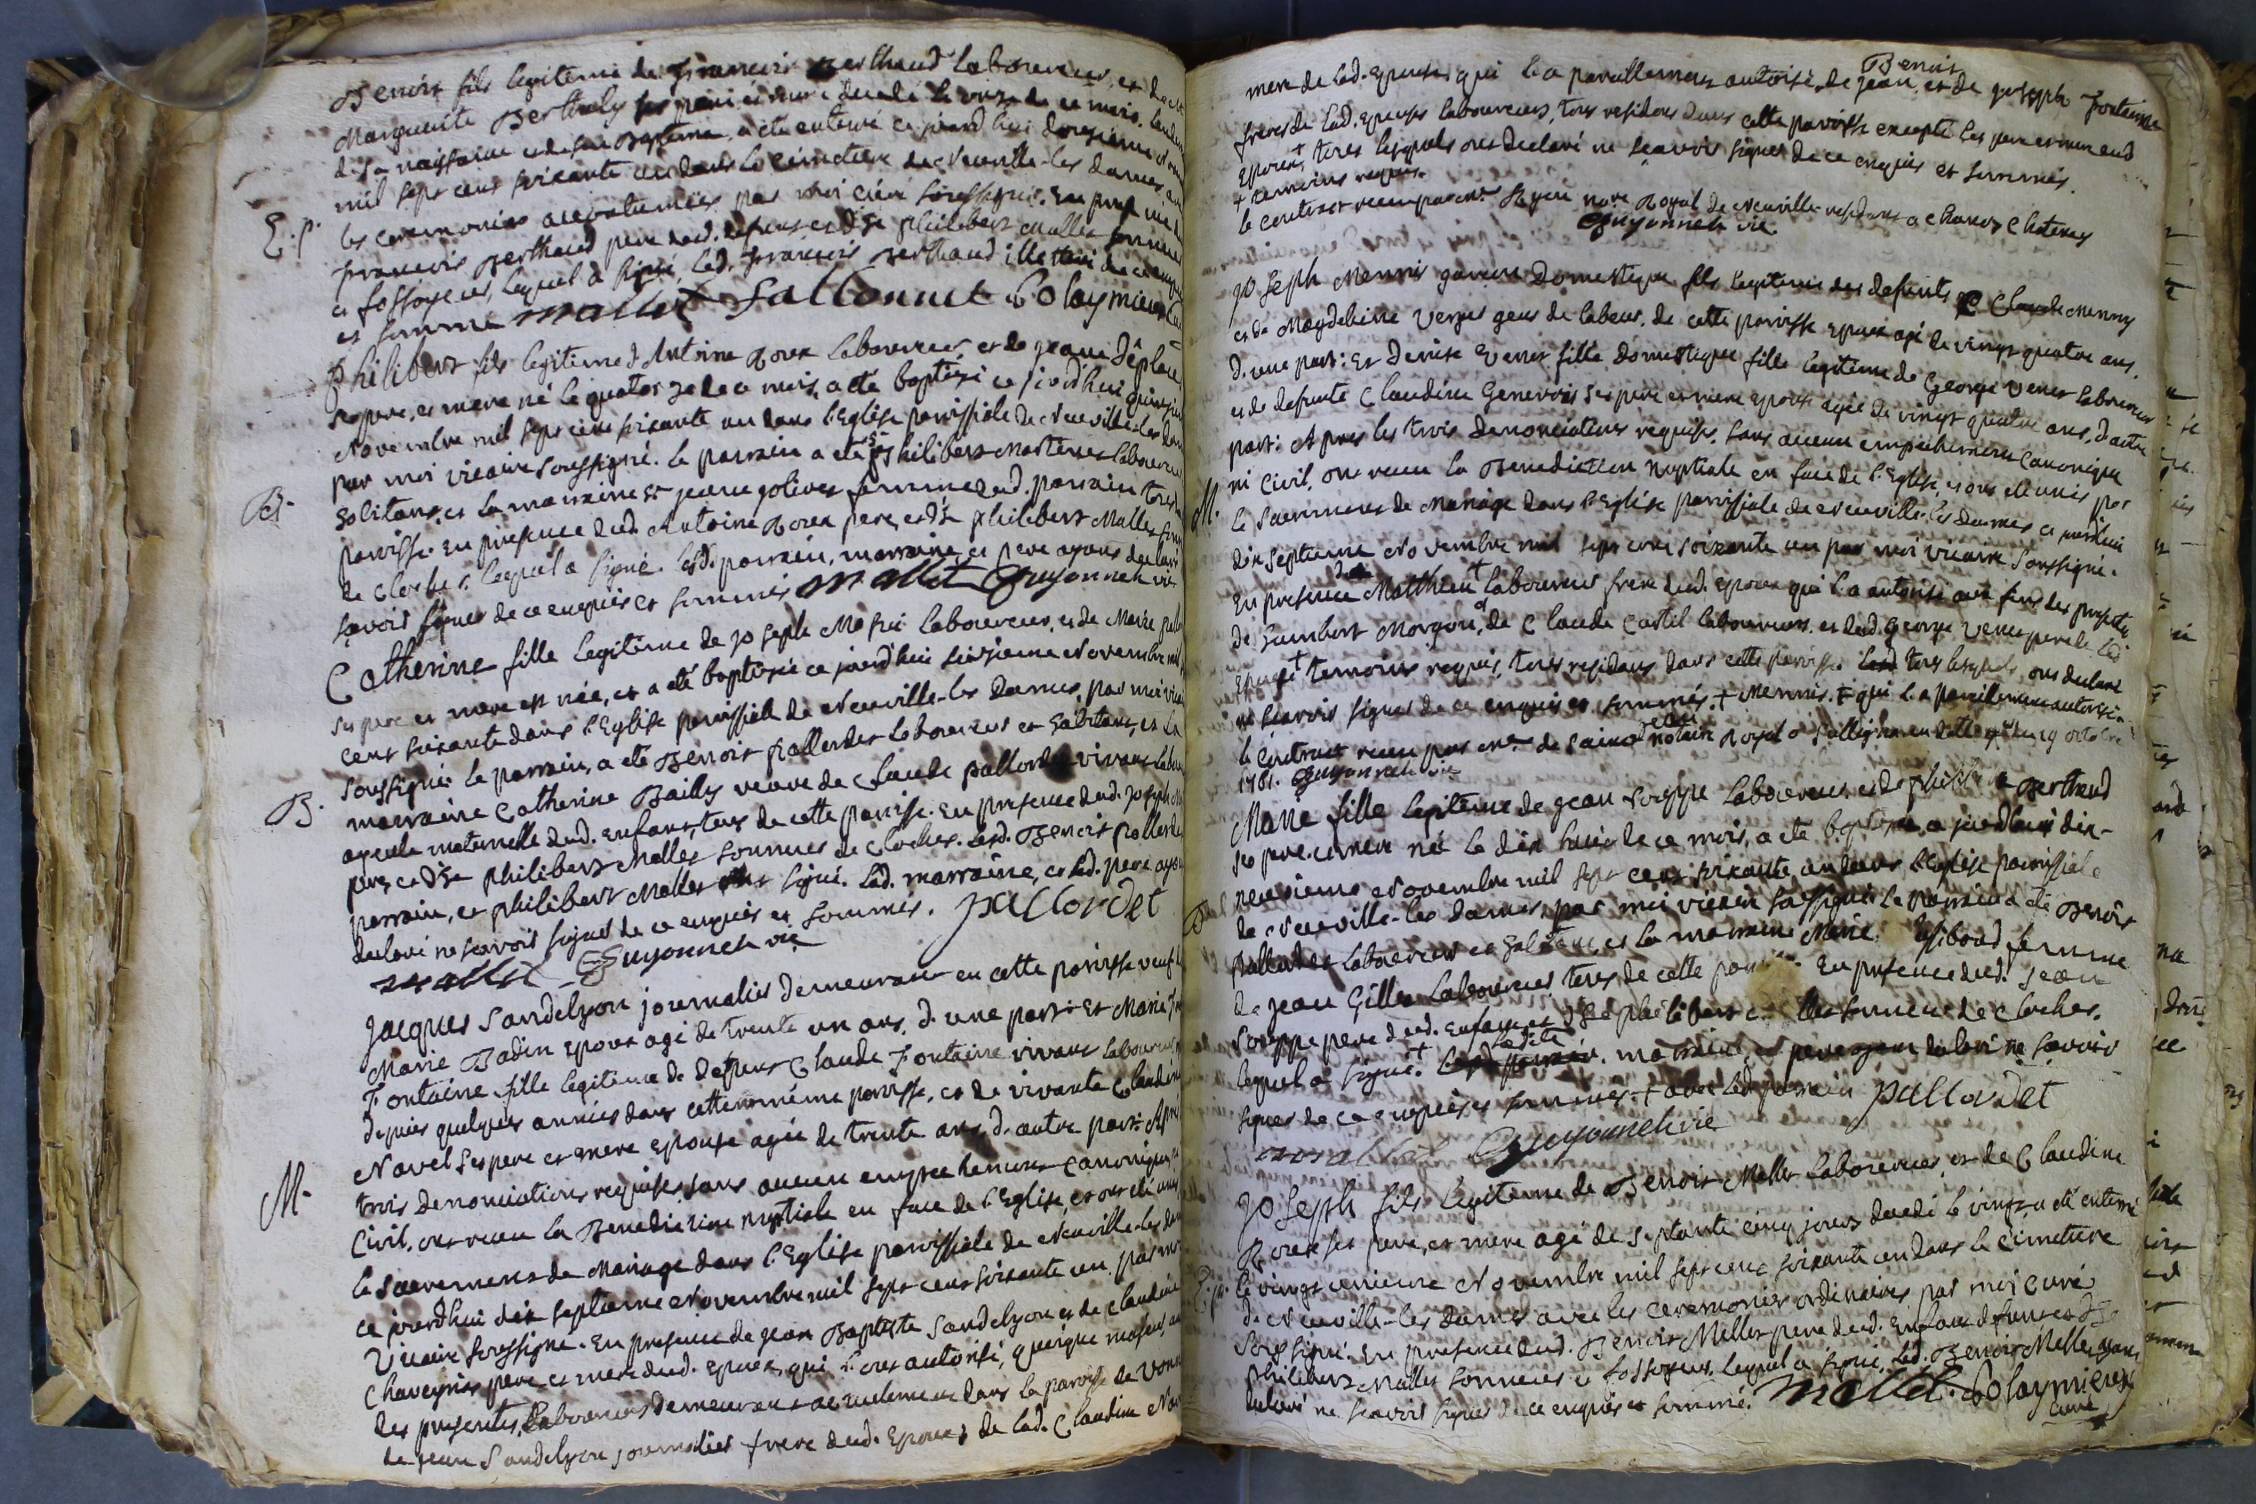 Benoit fils legitime de francois Berthaud laboureur, et de
Marguerite Berthely ses pere et mere decedé le onze de ce mois, lendemain
de sa naissance et de son Bapteme, a été enterré ce jourd'hui douzieme
mil sept cent soixante un dans le cimetiere de Neuville-les dames,
E. p.
les ceremonies accoutumées par moi curé soussigné. En presence
francois Berthaud pere dud. defunt et de philibert Mallet sonneur
et fossoyeur, lequel a signé led. francois Berthaud illitteré de ce enquis
et sommé mallet Sallonnet Colaymieux Curé
Philibert fils legitime d'Antoine Rorex laboureur, et de jeane Déplace
ses pere, et mere né le quatorze de ce mois, a été baptisé ce jourd'hui quinzieme
Novembre mil sept cent soixante un dans l'Eglise parroissiale de Neuville-les dames
par moi vicaire soussigné. le parrain a été philibert Mortenet laboureur
B.
et la marraine jeane golivet femme dud. parrain tous
parroisse. En presence dud. Antoine Rorex pere, et de philibert Mallet sonneur
de cloches, lequel a signé. lesd. parrain, marraine, et pere ayans declaré
sçavoir signer de ce enquis et sommés mallet Guyonnet vic.
Catherine fille legitime de joseph Mafui laboureur, et de Marie
ses pere et mere est née, et a été baptisée ce jourd'hui seizieme Novembre mil
cent soixante dans l'Eglise parroissiale de Neuville-les dames, par moi vicaire
soussigné. le parrain, a été Benoit pallordet laboureur et habitant, et la
B.
marraine Catherine Bailly veuve de Claude pallordet vivant
ayeule maternelle dud. enfant, tous de cette parroisse. En presence dud. joseph
pere, et de philibert Mallet sonneur de cloches. lesd. Benoit pallordet
parrain, et philibert Mallet ont signé. lad. marraine, et led. pere ayans
declaré ne sçavoir signer de ce enquis et sommés. pallordet
mallet Guyonnet vic.
Jacques Sandelyon journalier demeurant en cette parroisse veuf de
Marie Badin epoux agé de trente un ans, d'une part: Et Marie
Fontaine fille legitime de defunt Claude Fontaine vivant laboureur
depuis quelques années dans cette même parroisse, et de vivante Claudine
Navel ses pere et mere epouse agée de trente ans, d'autre part: Après
M.
trois denonciations requises, sans aucun empechement canonique
Civil, ont reçu la Benediction nuptiale en face de l'Eglise, et ont été unis
le sacrement de Mariage dans l'Eglise parroissiale de Neuville-les dames
ce jourd'hui dix septieme Novembre mil sept cent soixante un, par moi
Vicaire soussigné. En presence de jean Baptiste Sandelyon et de claudine
Chaveyrias pere, et mere dud. epoux, qui l'ont autorisé, quoique majeur, aux
des presentes, laboureurs demeurant actuelement dans la parroisse de Vonnas
de jean Sandelyon journalier frere dud. epoux; de lad. Claudine Navel
mere de lad. epouse, qui l'a parellement autorisé, de jean, Benoit et de joseph Fontaine
freres de lad. epouse laboureurs, tous residens dans cette parroisse excepté les pere et mere dud
epoux+, tous lesquels ont declaré ne sçavoir signer de ce enquis et sommés.
+ temoins requis.
le contract reçu par me. Royal de Neuville residant a chanoz Chatenay
Guyonnet vic.
joseph Mennis garcon domestique fils legitime des defunts Claude Mennis
et de Magdeleine Verges gens de labeur, de cette parroisse epoux agé de vingt quatre ans,
d'une part: Et denise Venet fille domestique fille legitime de George Venet laboureur
et de defunte Claudine Genevois ses pere et mere epouse agée de vingt quatre ans, d'autre
part: Après les trois denonciations requises, sans aucun empechement Canonique
ni Civil, ont reçu la Benediction nuptiale en face de l'Eglise, et ont été unis par
M.
le sacrement de Mariage dans l'Eglise parroissiale de Neuville-les dames ce jourd'hui
dix septieme Novembre mil sept cent soixante un par moi vicaire soussigné.
En presence de Matthieu+ laboureur frere dud. epoux qui l'a autorisé aux fins des presentes
de humbert Morgon, de Claude Castel laboureurs, et dud. George Venet pere de lad.
epouse‡ temoins requis, tous residans dans cette parroisse tous lesquels ont declaré
ne sçavoir signer de ce enquis et sommés. + Mennis. ‡ qui l'a pareillement autorisé.
le contract reçu par me. de saint notaire Royal a Sulligna en datte du 19 octobre
1761. Guyonnet vic.
Marie fille legitime de jean Soreppe laboureur et de Berthaud
ses pere et mere née le dix huit de ce mois, a été baptisée, ce jourd'hui dix-
neuvieme Novembre mil sept cent soixante un dans l'Eglise parroissiale
B.
de Neuville-les dames, par moi vicaire soussigné. le parrain a été Benoit
pallordet laboureur et habitant, et la marraine Marie femme
de jean Gillet laboureur, tous de cette parroisse. En presence dud. jean
Soreppe pere dud. enfant et de philibert Mallet sonneur de cloches,
lequel a signé‡. ladite marraine, et pere ayans declaré ne sçavoir
signer de ce enquis et sommés. ‡ avec led. parrain pallordet
mallet Guyonnet vic
Joseph fils legitime de Benoit Mellet laboureur, et de Claudine
Rorex ses pere, et mere agé de septante cinq jours decedé le vingt, a été enterré
E. p.
le vingt unieme Novembre mil sept cent soixante un dans le cimetiere
de Neuville-les dames avec les ceremonies ordinaires par moi curé
soussigné. En presence dud. Benoit Mellet pere dud. enfant defunct et de
philibert Mallet sonneur et fossoyeur, lequel a signé, led. Benoit Mellet ayant
declaré ne sçavoir signer de ce enquis et sommé. mallet. Colaymieux
curé